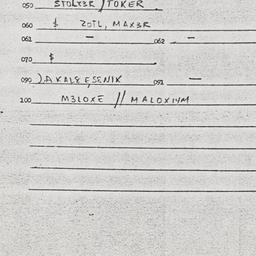 050 STOLX3R / TOKER
060 $ ZOTL, MAX3R
061 — 062 —
070 $
090 ).AKAL8 ESENIK 091 —
100 M3LOXE // MALOXI4M